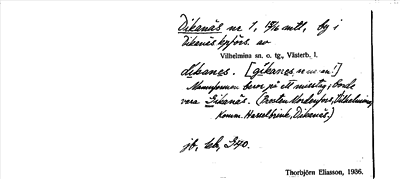 Dikanäs nr 1, 15/16 mtl, by i
Dikanäs kpförs. av
Vilhelmina sn. o. tg., Västerb. l.
dikanes. [gikanes
beror på ett misstag, borde
vara Gikanäs. (Torsten Nordenfors, Vilhelmina,
Komm. Hasselbrink, Dikanäs.)
jb, 340.
Thorbjörn Eliasson, 1936.